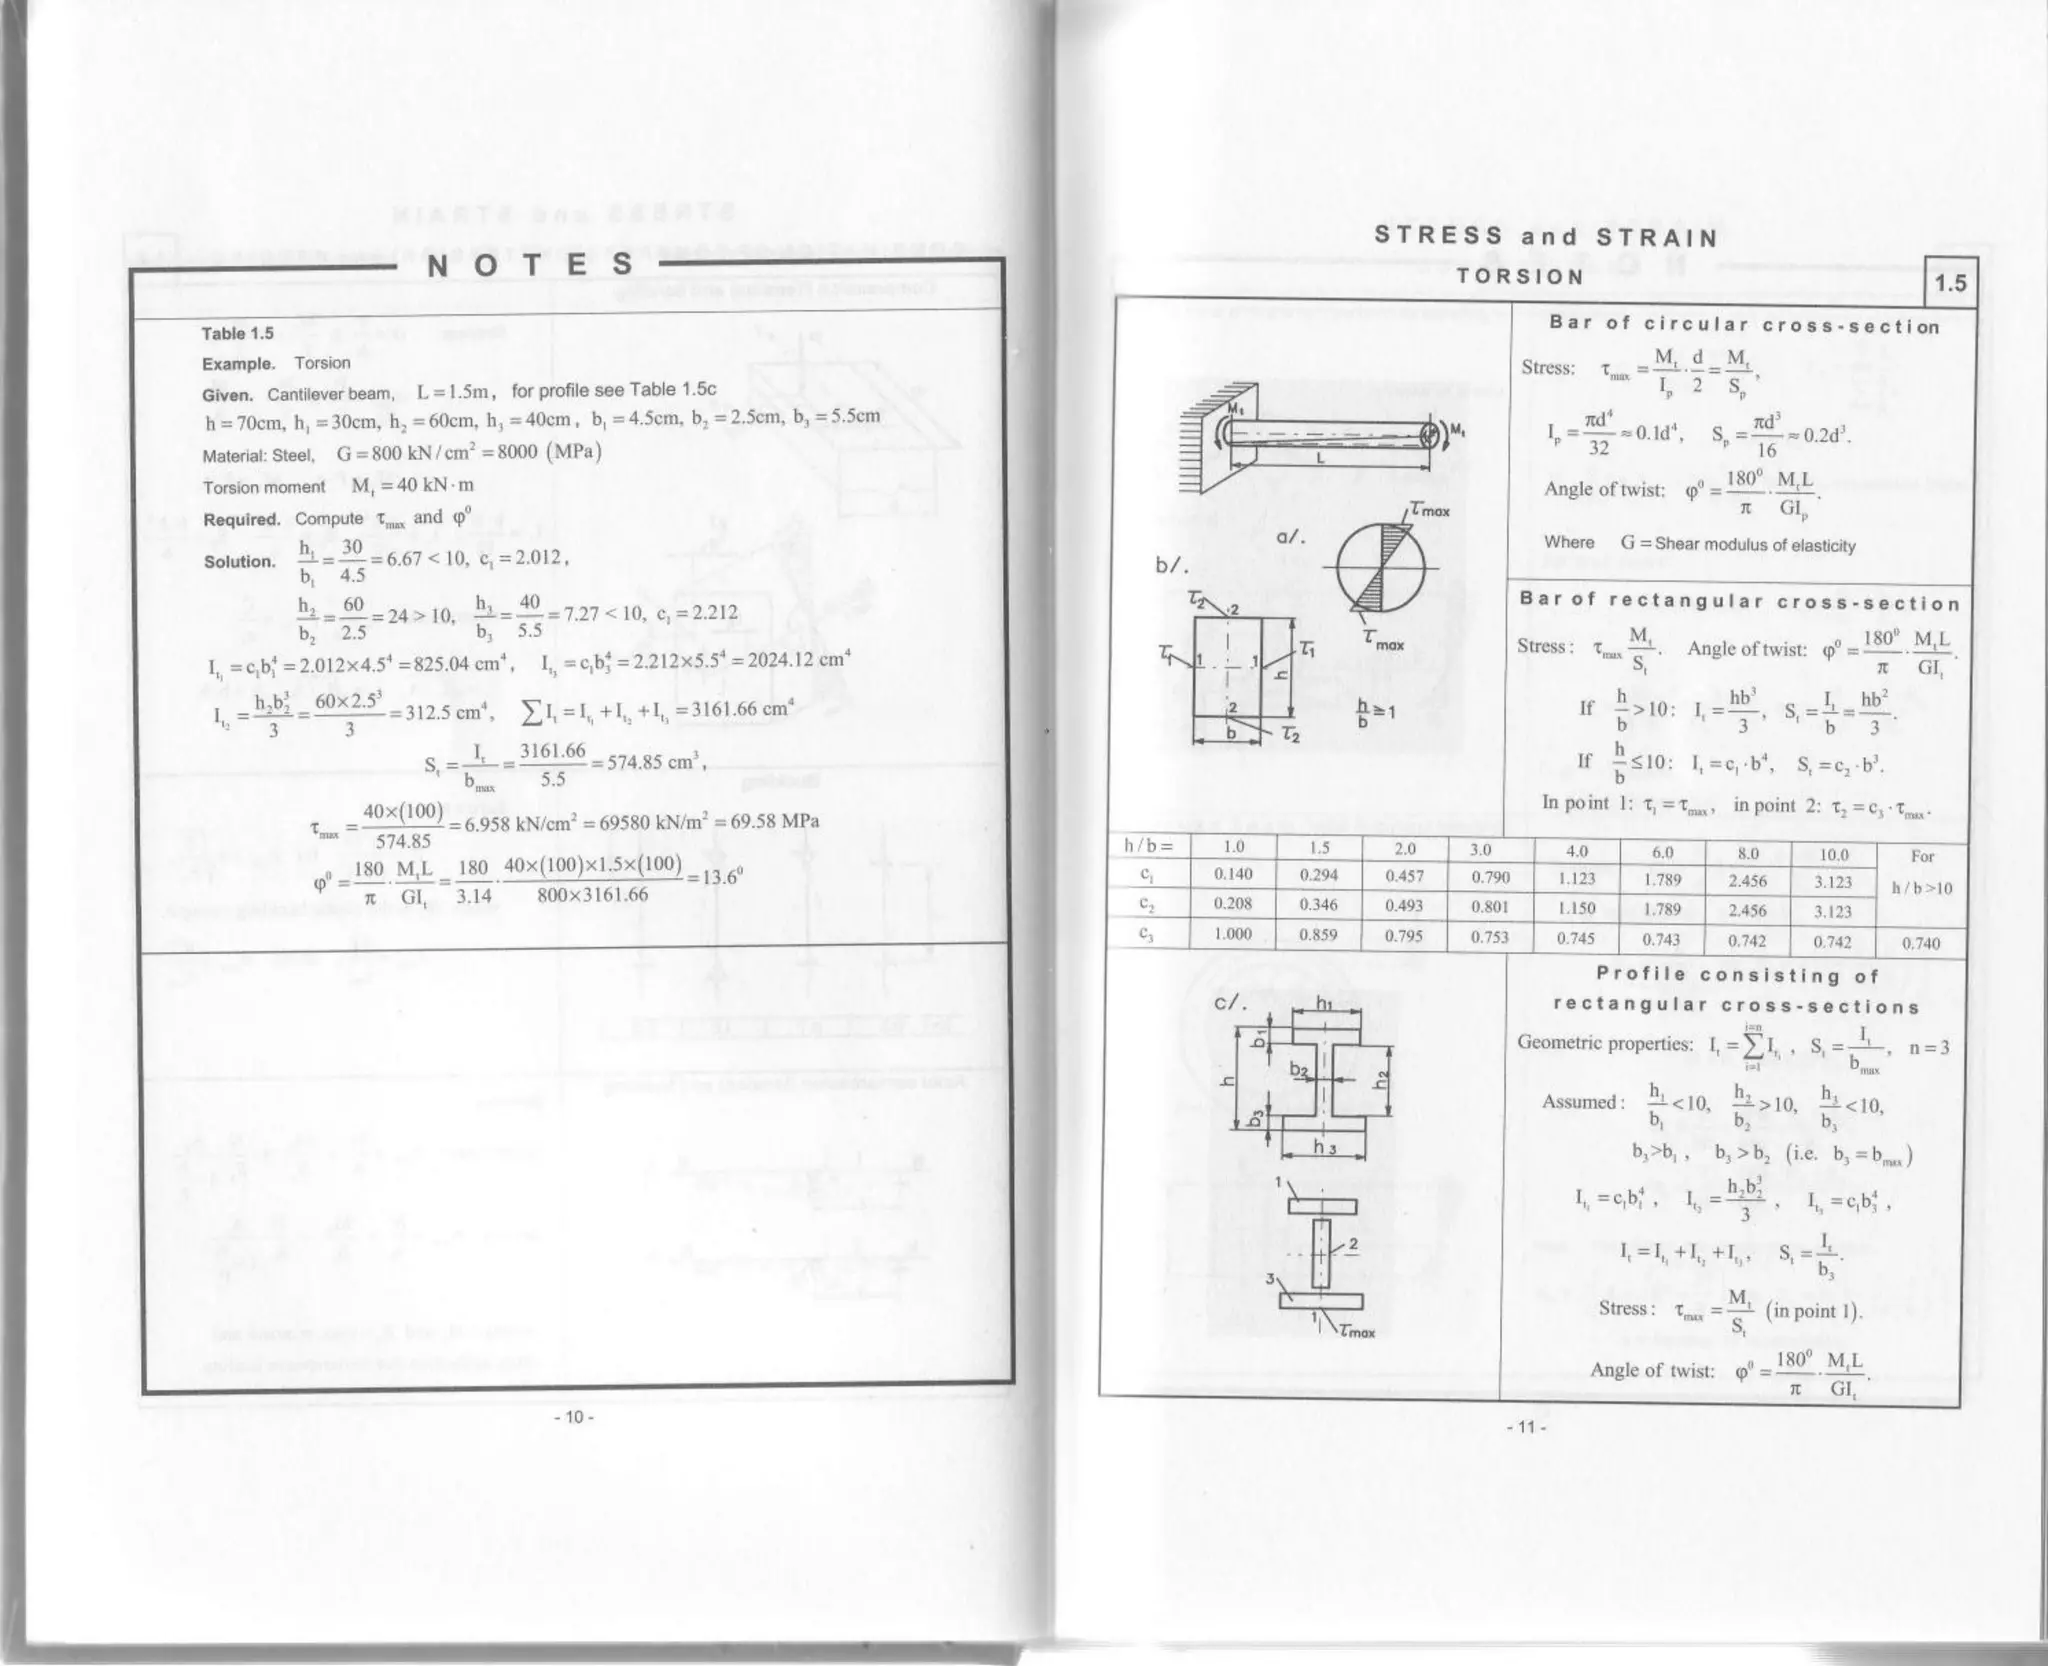 N O T E S
Table 1.5
Example. Torsion
Given. Cantilever beam, L = 1.5m, for profile see Table 1.5c
h = 70cm, h₁ = 30cm, h₂ = 60cm, h₃ = 40cm, b₁ = 4.5cm, b₂ = 2.5cm, b₃ = 5.5cm
Material: Steel, G = 800 kN/cm² = 8000 (MPa)
Torsion moment Mₜ = 40 kN·m
Required. Compute τmax and φ⁰
Solution. h₁/b₁ = 30/4.5 = 6.67 < 10, c₁ = 2.012,
h₂/b₂ = 60/2.5 = 24 > 10, h₃/b₃ = 40/5.5 = 7.27 < 10, c₁ = 2.212
Iₜ₁ = c₁b₁⁴ = 2.012×4.5⁴ = 825.04 cm⁴, Iₜ₃ = c₁b₃⁴ = 2.212×5.5⁴ = 2024.12 cm⁴
Iₜ₂ = h₂b₂³/3 = 60×2.5³/3 = 312.5 cm⁴, ∑Iₜ = Iₜ₁ + Iₜ₂ + Iₜ₃ = 3161.66 cm⁴
Sₜ = Iₜ/bmax = 3161.66/5.5 = 574.85 cm³,
τmax = 40×(100)/574.85 = 6.958 kN/cm² = 69580 kN/m² = 69.58 MPa
φ⁰ = 180/π · MₜL/GIₜ = 180/3.14 · 40×(100)×1.5×(100)/800×3161.66 = 13.6⁰
- 10 -
STRESS and STRAIN
TORSION
1.5
Mₜ
Mₜ
L
a/.
τmax
τmax
b/.
τ₂
2
τ₁
1
1
τ₁
h
2
b
τ₂
h/b ≥ 1
Bar of circular cross-section
Stress: τmax = Mₜ/Iₚ · d/2 = Mₜ/Sₚ,
Iₚ = πd⁴/32 ≈ 0.1d⁴, Sₚ = πd³/16 ≈ 0.2d³.
Angle of twist: φ⁰ = 180⁰/π · MₜL/GIₚ.
Where G = Shear modulus of elasticity
Bar of rectangular cross-section
Stress: τmax = Mₜ/Sₜ. Angle of twist: φ⁰ = 180⁰/π · MₜL/GIₜ.
If h/b > 10: Iₜ = hb³/3, Sₜ = Iₜ/b = hb²/3.
If h/b ≤ 10: Iₜ = c₁·b⁴, Sₜ = c₂·b³.
In point 1: τ₁ = τmax, in point 2: τ₂ = c₃·τmax.
h/b= 1.0 1.5 2.0 3.0 4.0 6.0 8.0 10.0 For h/b>10
c₁ 0.140 0.294 0.457 0.790 1.123 1.789 2.456 3.123
c₂ 0.208 0.346 0.493 0.801 1.150 1.789 2.456 3.123
c₃ 1.000 0.859 0.795 0.753 0.745 0.743 0.742 0.742 0.740
c/.
h₁
b₁
h
b₂
h₂
b₃
h₃
1
2
3
1
τmax
Profile consisting of
rectangular cross-sections
Geometric properties: Iₜ = ∑ᵢ₌₁ⁱ⁼ⁿ Iₜᵢ, Sₜ = Iₜ/bmax, n = 3
Assumed: h₁/b₁ < 10, h₂/b₂ > 10, h₃/b₃ < 10,
b₃>b₁, b₃ > b₂ (i.e. b₃ = bmax)
Iₜ₁ = c₁b₁⁴, Iₜ₂ = h₂b₂³/3, Iₜ₃ = c₁b₃⁴,
Iₜ = Iₜ₁ + Iₜ₂ + Iₜ₃, Sₜ = Iₜ/b₃.
Stress: τmax = Mₜ/Sₜ (in point 1).
Angle of twist: φ⁰ = 180⁰/π · MₜL/GIₜ.
- 11 -